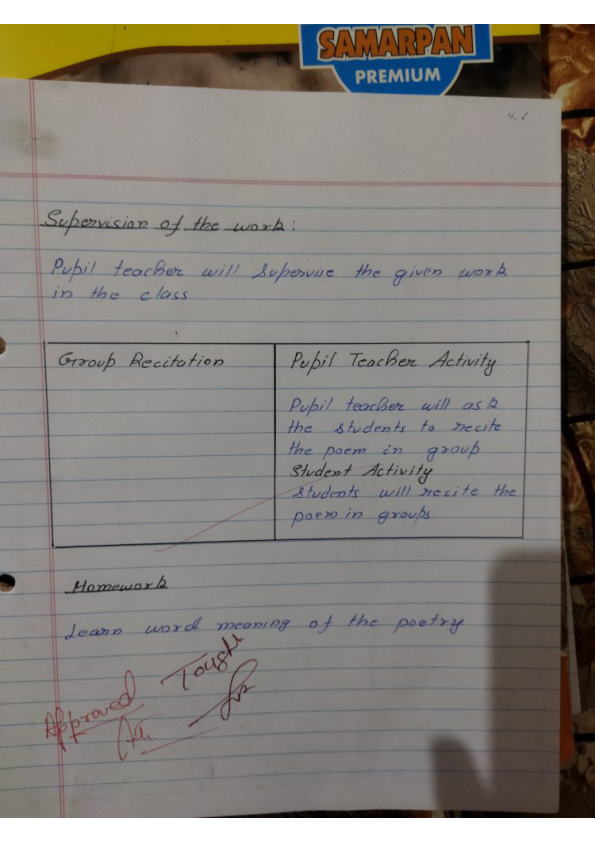 SAMARPAN
PREMIUM
Supervision of the work:
Pupil teacher will supervise the given work
in the class
Group Recitation
Pupil Teacher Activity
Pupil teacher will ask
the students to recite
the poem in group
Student Activity
students will recite the
poem in groups
Homework
Learn word meaning of the poetry
Approved